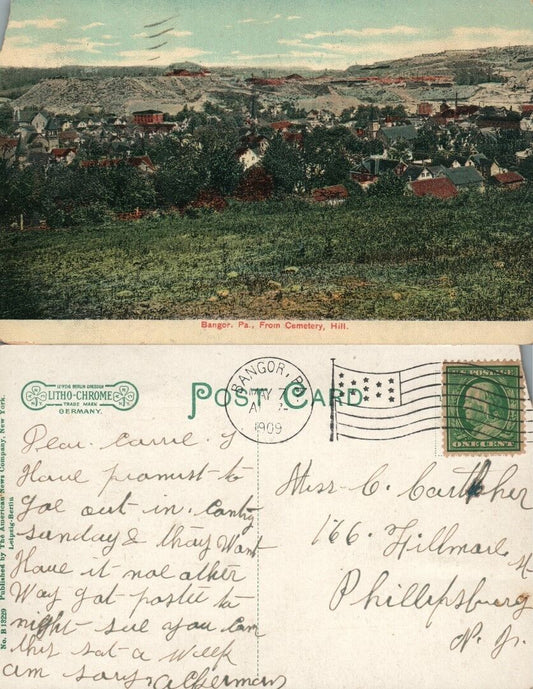 Bangor, Pa., From Cemetery, Hill.
LEIPZIG BERLIN DRESDEN
LITHO-CHROME
TRADE MARK
GERMANY.
POST CARD
BANGOR, PA
MAY 7
1909
U.S. POSTAGE
ONE CENT
No. B 13229 Published by The American News Company, New York.
Leipzig-Berlin
Dear. Carrie. I
Have promist to
goe out in. Contry
Sunday & thay Want
Have it no other
Way got postle to
night see you Can
this sat a week
am sory
Miss. C.
166. Fillmore
Phillipsburg
N. J.